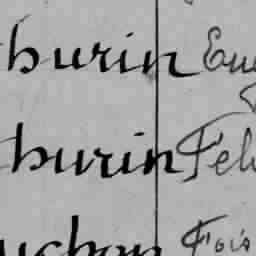 burin Eug
burin Feli
uchon Fois